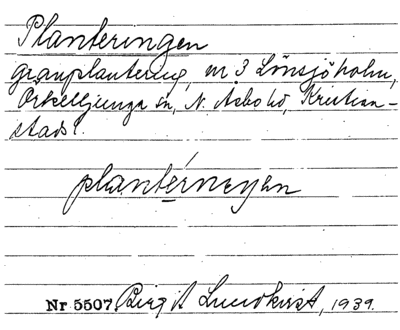 Planteringen
granplantering, m. 3 Lönsjöholm,
Örkelljunga sn, N. Åsbo hd, Kristian-
stads l.
planterneŋen
Nr 5507 Birgit Lundkvist, 1939.